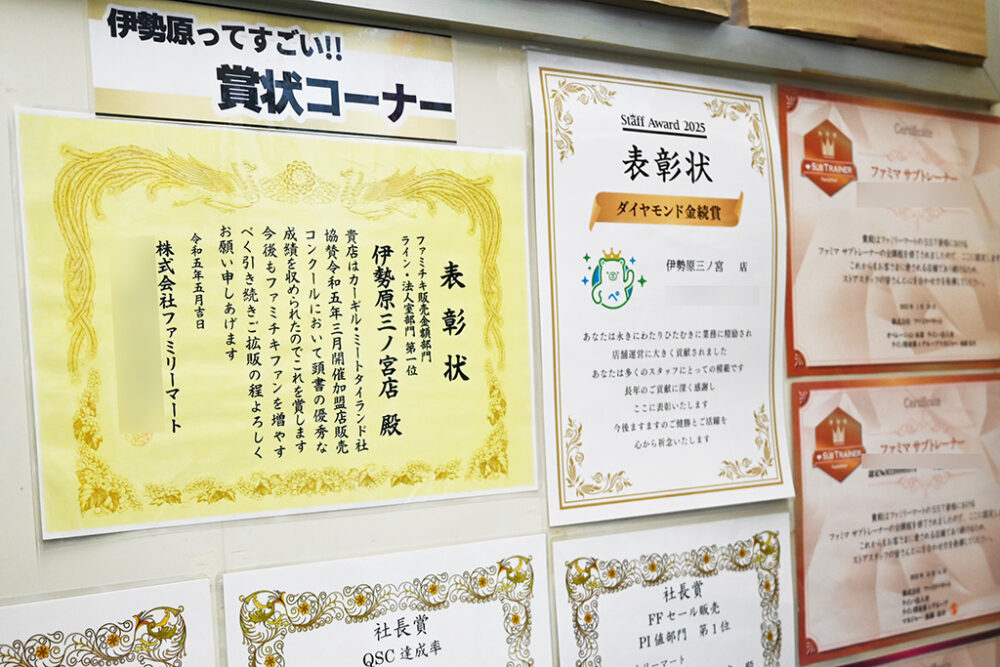 伊勢原ってすごい!!
賞状コーナー
表彰状
ファミチキ販売金額部門
ライン・法人室部門 第一位
伊勢原三ノ宮店 殿
貴店はカーギル・ミートタイランド社
協賛令和五年三月開催加盟店販売
コンクールにおいて頭書の優秀な
成績を収められたのでこれを賞します
今後もファミチキファンを増やす
べく引き続きご拡販の程よろしく
お願い申しあげます
令和五年五月吉日
株式会社ファミリーマート
Staff Award 2025
表彰状
ダイヤモンド金続賞
ぺ
伊勢原三ノ宮 店
あなたは永きにわたりひたむきに業務に精励され
店舗運営に大きく貢献されました
あなたは多くのスタッフにとっての模範です
長年のご貢献に深く感謝し
ここに表彰いたします
今後ますますのご健勝とご活躍を
心から祈念いたします
Certificate
SUB TRAINER
FamilyMart
ファミマ サブトレーナー
貴殿はファミリーマートのSST資格における
ファミマ サブトレーナーの全課程を修了されましたので、ここに認定し
これからもお客さまに愛される店舗であり続けるため、
ストアスタッフの皆さんと
株式会社 ファミリーマート
Certificate
SUB TRAINER
FamilyMart
ファミマ サブトレーナー
貴殿はファミリーマートのSST資格における
ファミマ サブトレーナーの全課程を修了されましたので、ここに認定し
これからもお客さまに愛される店舗であり続けるため、
ストアスタッフの皆さんと
株式会社 ファミリーマート
社長賞
QSC 達成率
社長賞
FFセール販売
PI値部門 第1位